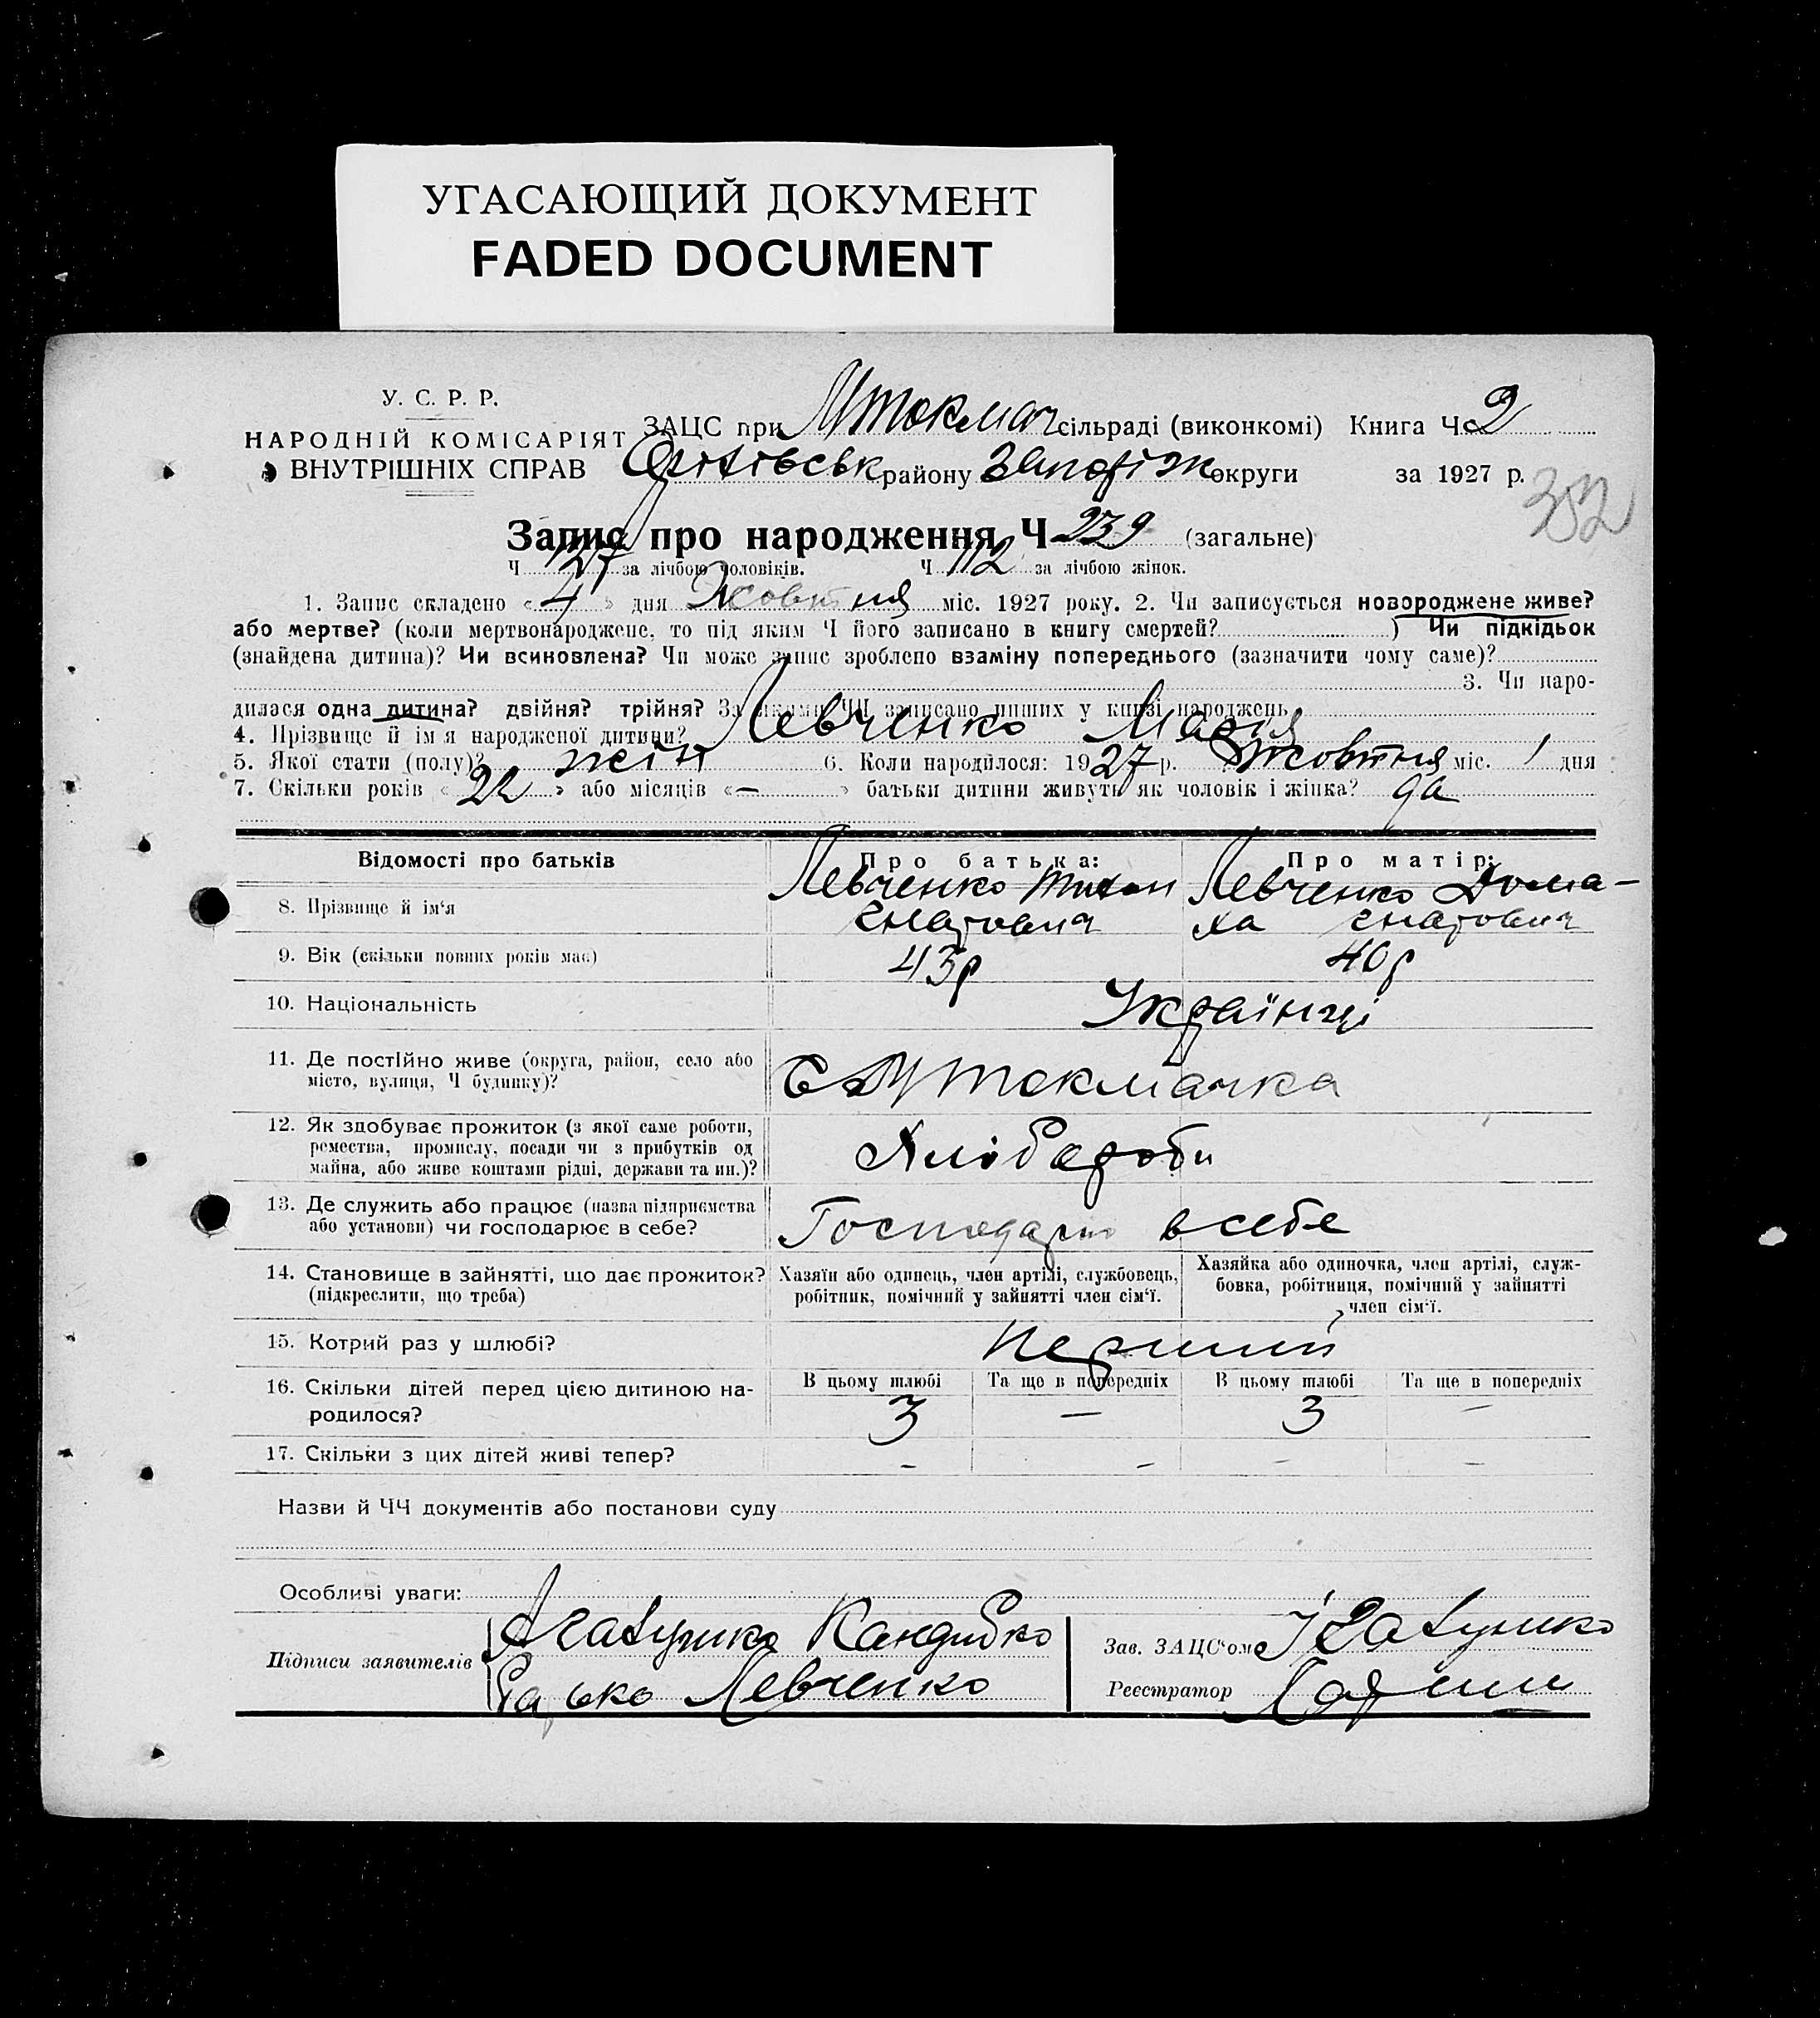 УГАСАЮЩИЙ ДОКУМЕНТ
FADED DOCUMENT
У. С. Р. Р.
НАРОДНІЙ КОМІСАРІЯТ
ВНУТРІШНІХ СПРАВ
ЗАЦС при МТокмач сільраді (виконкомі) Книга Ч 2
Оріхівськ району Запоріж округи за 1927 р.
352
Запис про народження Ч 239 (загальне)
Ч 127 за лічбою чоловіків. Ч 112 за лічбою жінок.
1. Запис складено «4» дня Жовтня міс. 1927 року. 2. Чи записується новороджене живе?
або мертве? (коли мертвонароджене, то під яким Ч його записано в книгу смертей? ) Чи підкідьок
(знайдена дитина)? Чи всиновлена? Чи може запис зроблено взаміну попереднього (зазначити чому саме)?
3. Чи наро-
дилася одна дитина? двійня? трійня? За якими ЧЧ записано инших у книзі народжень
4. Прізвище й ім'я народженої дитини? Левченко Марія
5. Якої стати (полу)? жін 6. Коли народилося: 1927 р. Жовтня міс. 1 дня
7. Скільки років «22» або місяців «—» батьки дитини живуть як чоловік і жінка? да
Відомості про батьків Про батька: Про матір:
8. Прізвище й ім'я Левченко Тихон Левченко Дома-
Гнатович ха Гнатович
9. Вік (скільки повних років має) 43р 40р
10. Національність Українці
11. Де постійно живе (округа, район, село або
місто, вулиця, Ч будинку)? С МТокмачка
12. Як здобуває прожиток (з якої саме роботи,
ремества, промислу, посади чи з прибутків од
майна, або живе коштами рідні, держави та ин.)? Хлібороби
13. Де служить або працює (назва підприємства
або установи) чи господарює в себе? Господарю в себе
14. Становище в зайнятті, що дає прожиток?
(підкреслити, що треба)
Хазяїн або одинець, член артілі, службовець,
робітник, помічний у зайнятті член сім'ї.
Хазяйка або одиночка, член артілі, служ-
бовка, робітниця, помічний у зайнятті
член сім'ї.
15. Котрий раз у шлюбі? Перший
16. Скільки дітей перед цією дитиною на-
родилося?
В цьому шлюбі Та ще в попередніх В цьому шлюбі Та ще в попередніх
3 — 3 —
17. Скільки з цих дітей живі тепер? - - - -
Назви й ЧЧ документів або постанови суду
Особливі уваги:
Підписи заявителів Кандибко
Левченко
Зав. ЗАЦС'ом
Реєстратор